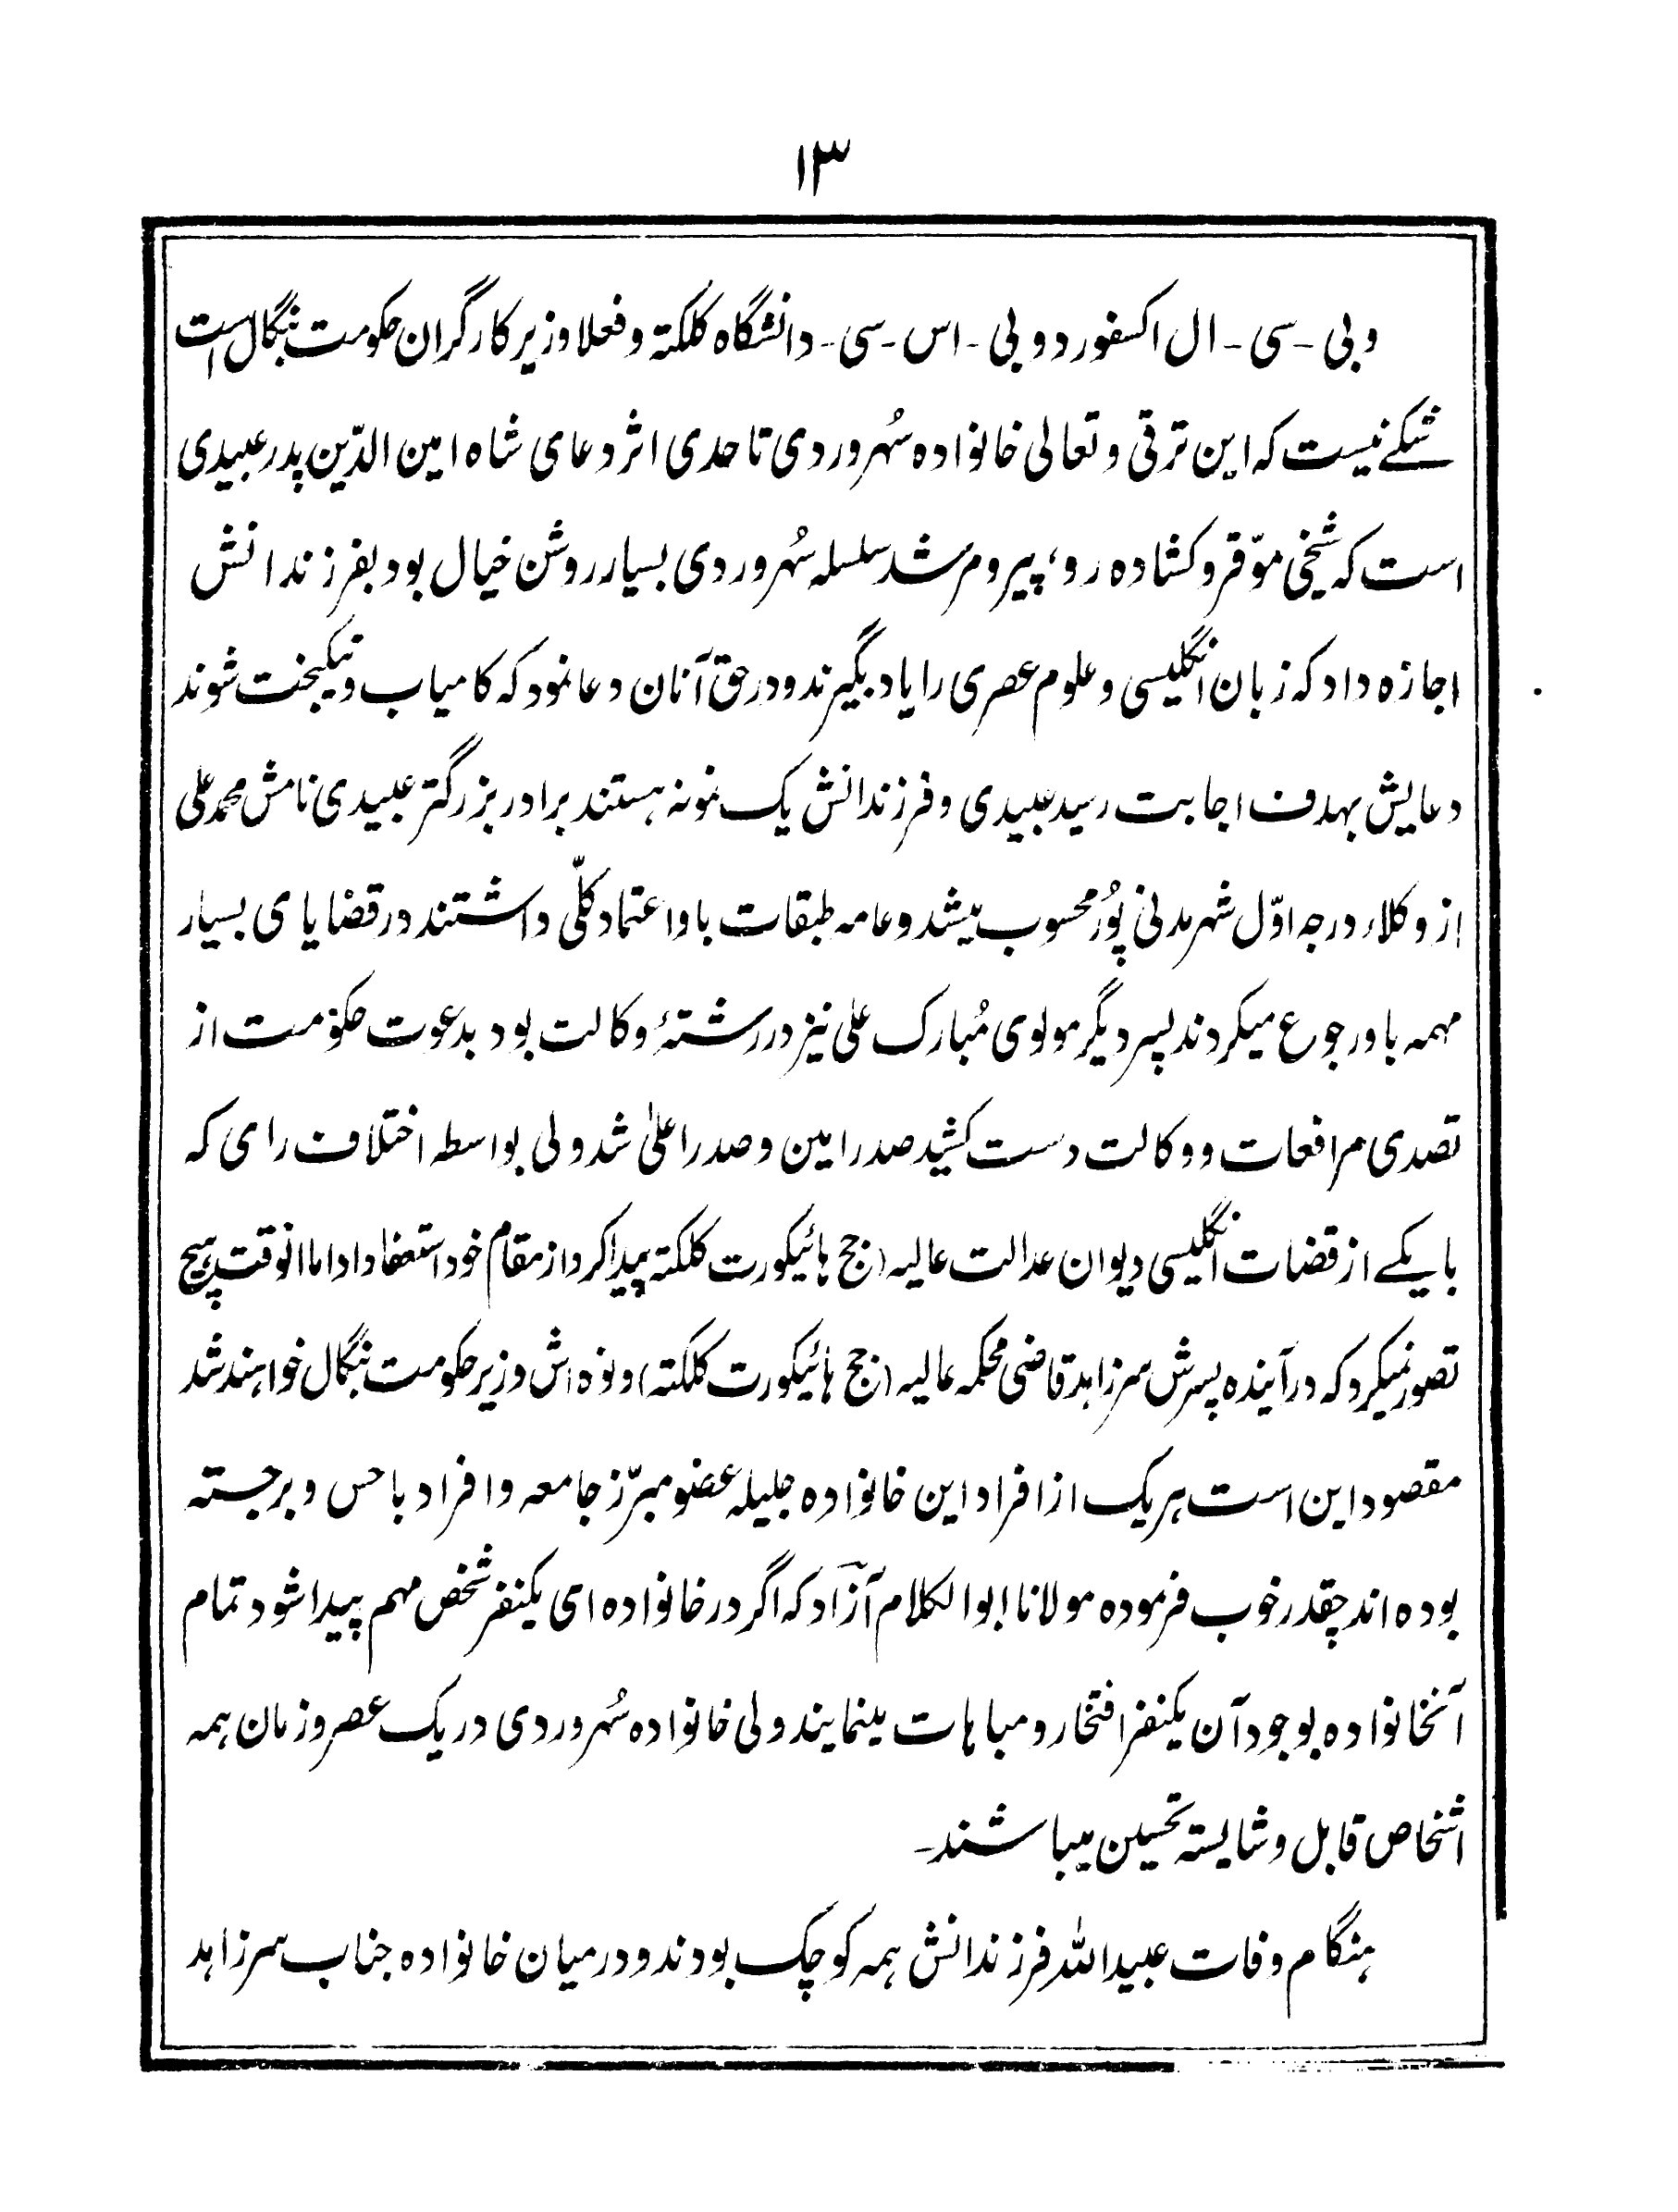 ۱۳
و بی - سی - ال اکسفورد و بی - اس - سی - دانشگاه کلکته و فعلا وزیر کارگران حکومت بنگال است
شکے نیست که این ترقی و تعالی خانواده سُهروردی تا حدی اثر دعای شاه امین الدّین پدر عبیدی
است که شیخی موّقر و کشاده رو، پیر و مرشد سلسله سُهروردی بسیار روشن خیال بود بفرزندانش
اجازه داد که زبان انگلیسی و علوم عصری را یاد بگیرند و در حق آنان دعا نمود که کامیاب و نیکبخت شوند
دعایش بهدف اجابت رسید عبیدی و فرزندانش یک نمونه هستند برادر بزرگتر عبیدی نامش محمد علی
از وکلاء درجه اوّل شهر مدنی پُور محسوب میشد و عامه طبقات باو اعتماد کلّی داشتند در قضایای بسیار
مهمه باو رجوع میکردند پسر دیگر مولوی مُبارک علی نیز در رشتهٔ وکالت بود بدعوت حکومت از
تصدی مرافعات و وکالت دست کشید صدر امین و صدر اعلیٰ شد ولی بواسطه اختلاف رای که
با یکے از قضات انگلیسی دیوان عدالت عالیه (جج هائیکورت کلکته پیدا کرد از مقام خود استعفا داد اما انوقت هیچ
تصور نمیکرد که در آینده پسرش سر زاهد قاضی محکمه عالیه (جج هائیکورت کلکته) و نوه اش وزیر حکومت بنگال خواهند شد
مقصود این است هر یک از افراد این خانواده جلیله عضو مبرّز جامعه و افراد با حس و برجسته
بوده اند چقدر خوب فرموده مولانا ابوالکلام آزاد که اگر در خانواده ای یکنفر شخص مهم پیدا شود تمام
آنخانواده بوجود آن یکنفر افتخار و مباهات مینمایند ولی خانواده سُهروردی در یک عصر و زمان همه
اشخاص قابل و شایسته تحسین میباشند-
هنگام وفات عبیدالله فرزندانش همه کوچک بودند و در میان خانواده جناب سر زاهد